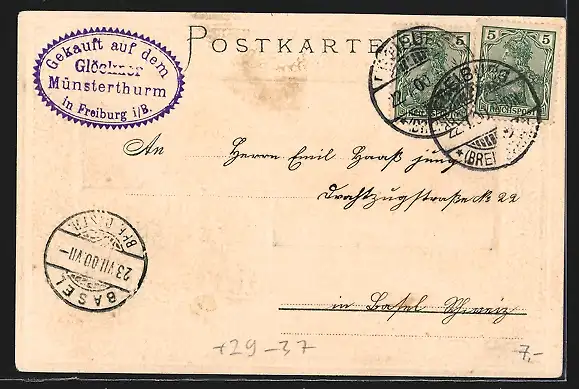 Gekauft auf dem
Glöckner
Münsterthurm
in Freiburg i/B.
POSTKARTE
5
5
REICHSPOST
FREIBURG
(BREISGAU)
An Herrn Emil Haaß jung
Drahtzugstraße No 22
in Basel Schweiz
BASEL
23 VII 00 VII
+29-37
7,-